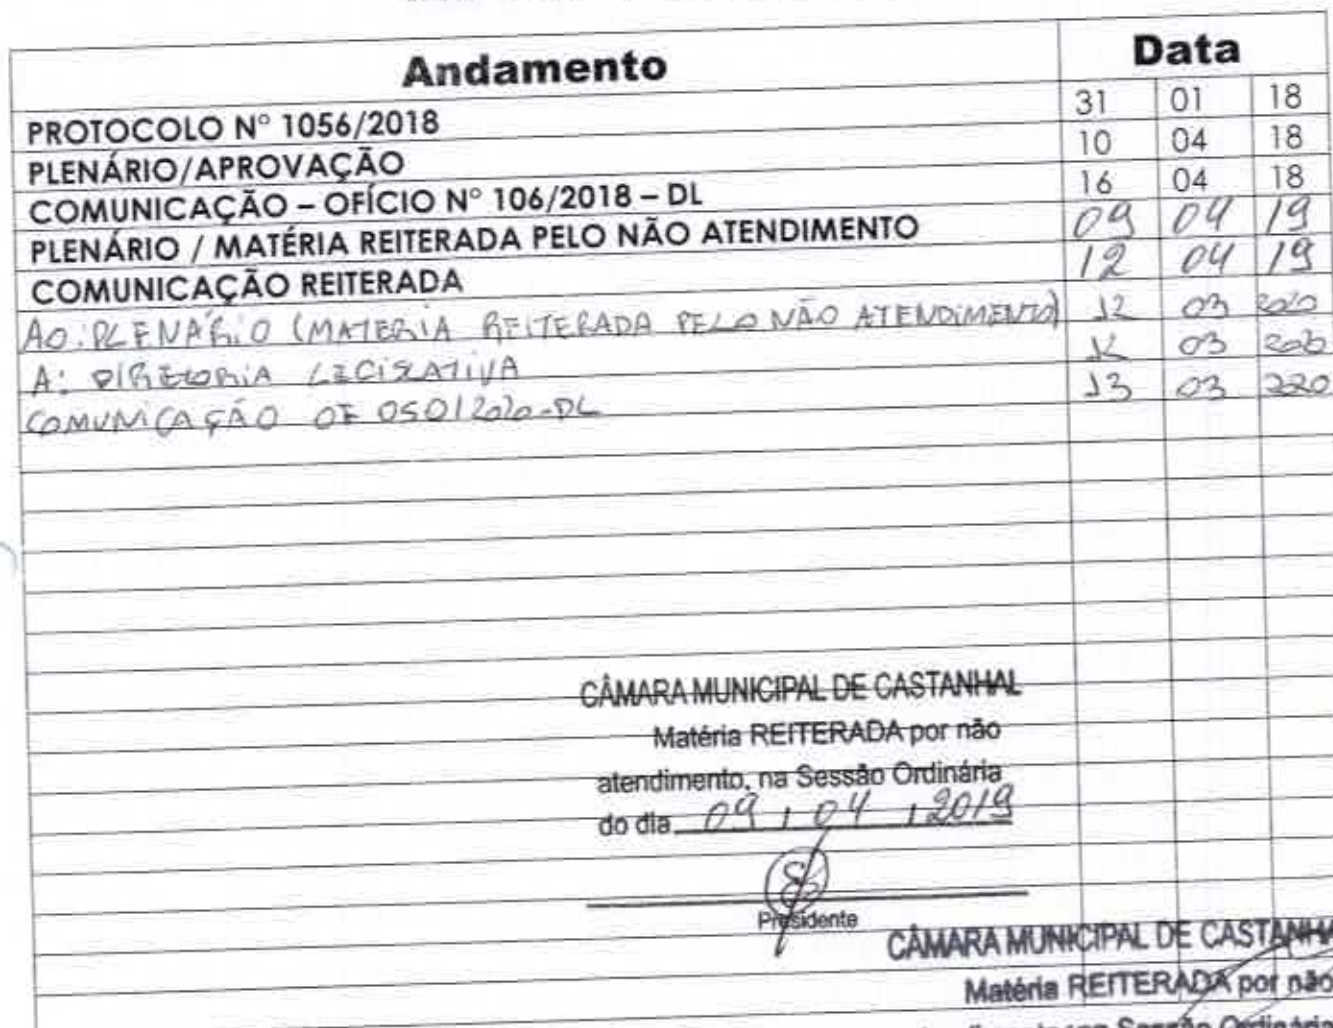 Andamento Data
PROTOCOLO N° 1056/2018 31 01 18
PLENÁRIO/APROVAÇÃO 10 04 18
COMUNICAÇÃO – OFÍCIO N° 106/2018 – DL 16 04 18
PLENÁRIO / MATÉRIA REITERADA PELO NÃO ATENDIMENTO 09 04 19
COMUNICAÇÃO REITERADA 12 04 19
AO: PLENÁRIO (MATERIA REITERADA PELO NÃO ATENDIMENTO) 12 03 2020
A: DIRETORIA LEGISLATIVA 12 03 2020
COMUNICAÇÃO OF 050/2020-DL 13 03 2020
CÂMARA MUNICIPAL DE CASTANHAL
Matéria REITERADA por não
atendimento, na Sessão Ordinária
do dia 09 / 04 / 2019
Presidente
CÂMARA MUNICIPAL DE CASTANHA
Matéria REITERADA por não
Sessão Ordinária